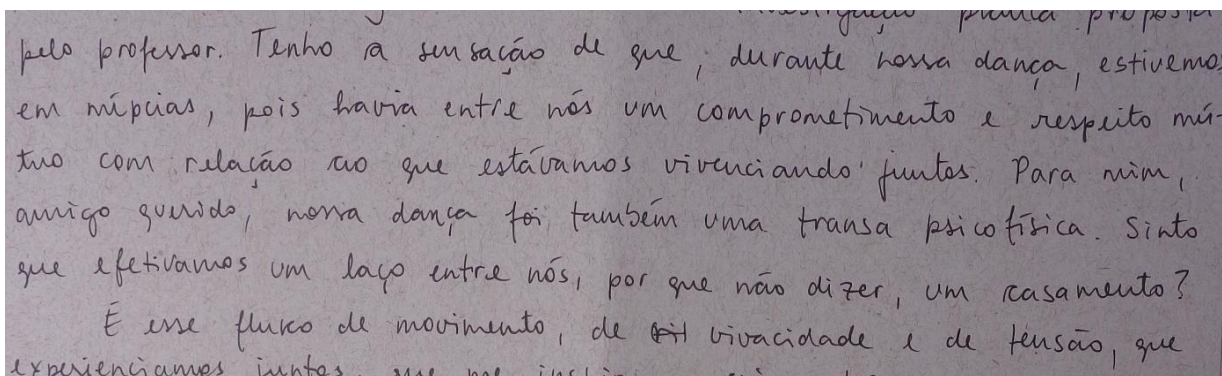 investigação prática proposta
pelo professor. Tenho a sensação de que, durante nossa dança, estivemos
em núpcias, pois havia entre nós um comprometimento e respeito mú-
tuo com relação ao que estávamos vivenciando juntos. Para mim,
amigo querido, nossa dança foi também uma transa psicofísica. Sinto
que efetivamos um laço entre nós, por que não dizer, um casamento?
É esse fluxo de movimento, de vivacidade e de tensão, que
experienciamos juntos, que me